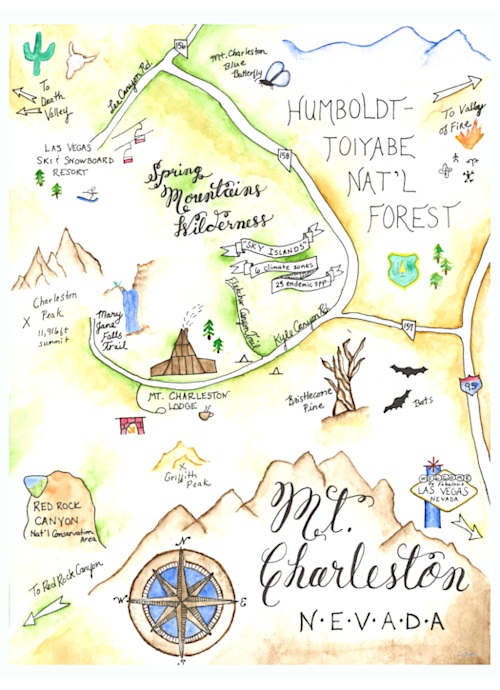 156
Lee Canyon Rd.
Mt. Charleston
Blue
Butterfly
To
Death
Valley
To Valley
of Fire
HUMBOLDT-
TOIYABE
NAT'L
FOREST
LAS VEGAS
SKI & SNOWBOARD
RESORT
158
Spring
Mountains
Wilderness
"SKY ISLANDS"
6 climate zones
25 endemic spp.
Fletcher Canyon Trail
Kyle Canyon Rd
157
95
Charleston
Peak
X
11,916 ft
summit
Mary
Jane
Falls
Trail
MT. CHARLESTON
LODGE
Bristlecone
Pine
Bats
X
Griffith
Peak
WELCOME
to Fabulous
LAS VEGAS
NEVADA
RED ROCK
CANYON
Nat'l Conservation
Area
To Red Rock Canyon
N
W
E
S
Mt.
Charleston
N·E·V·A·D·A